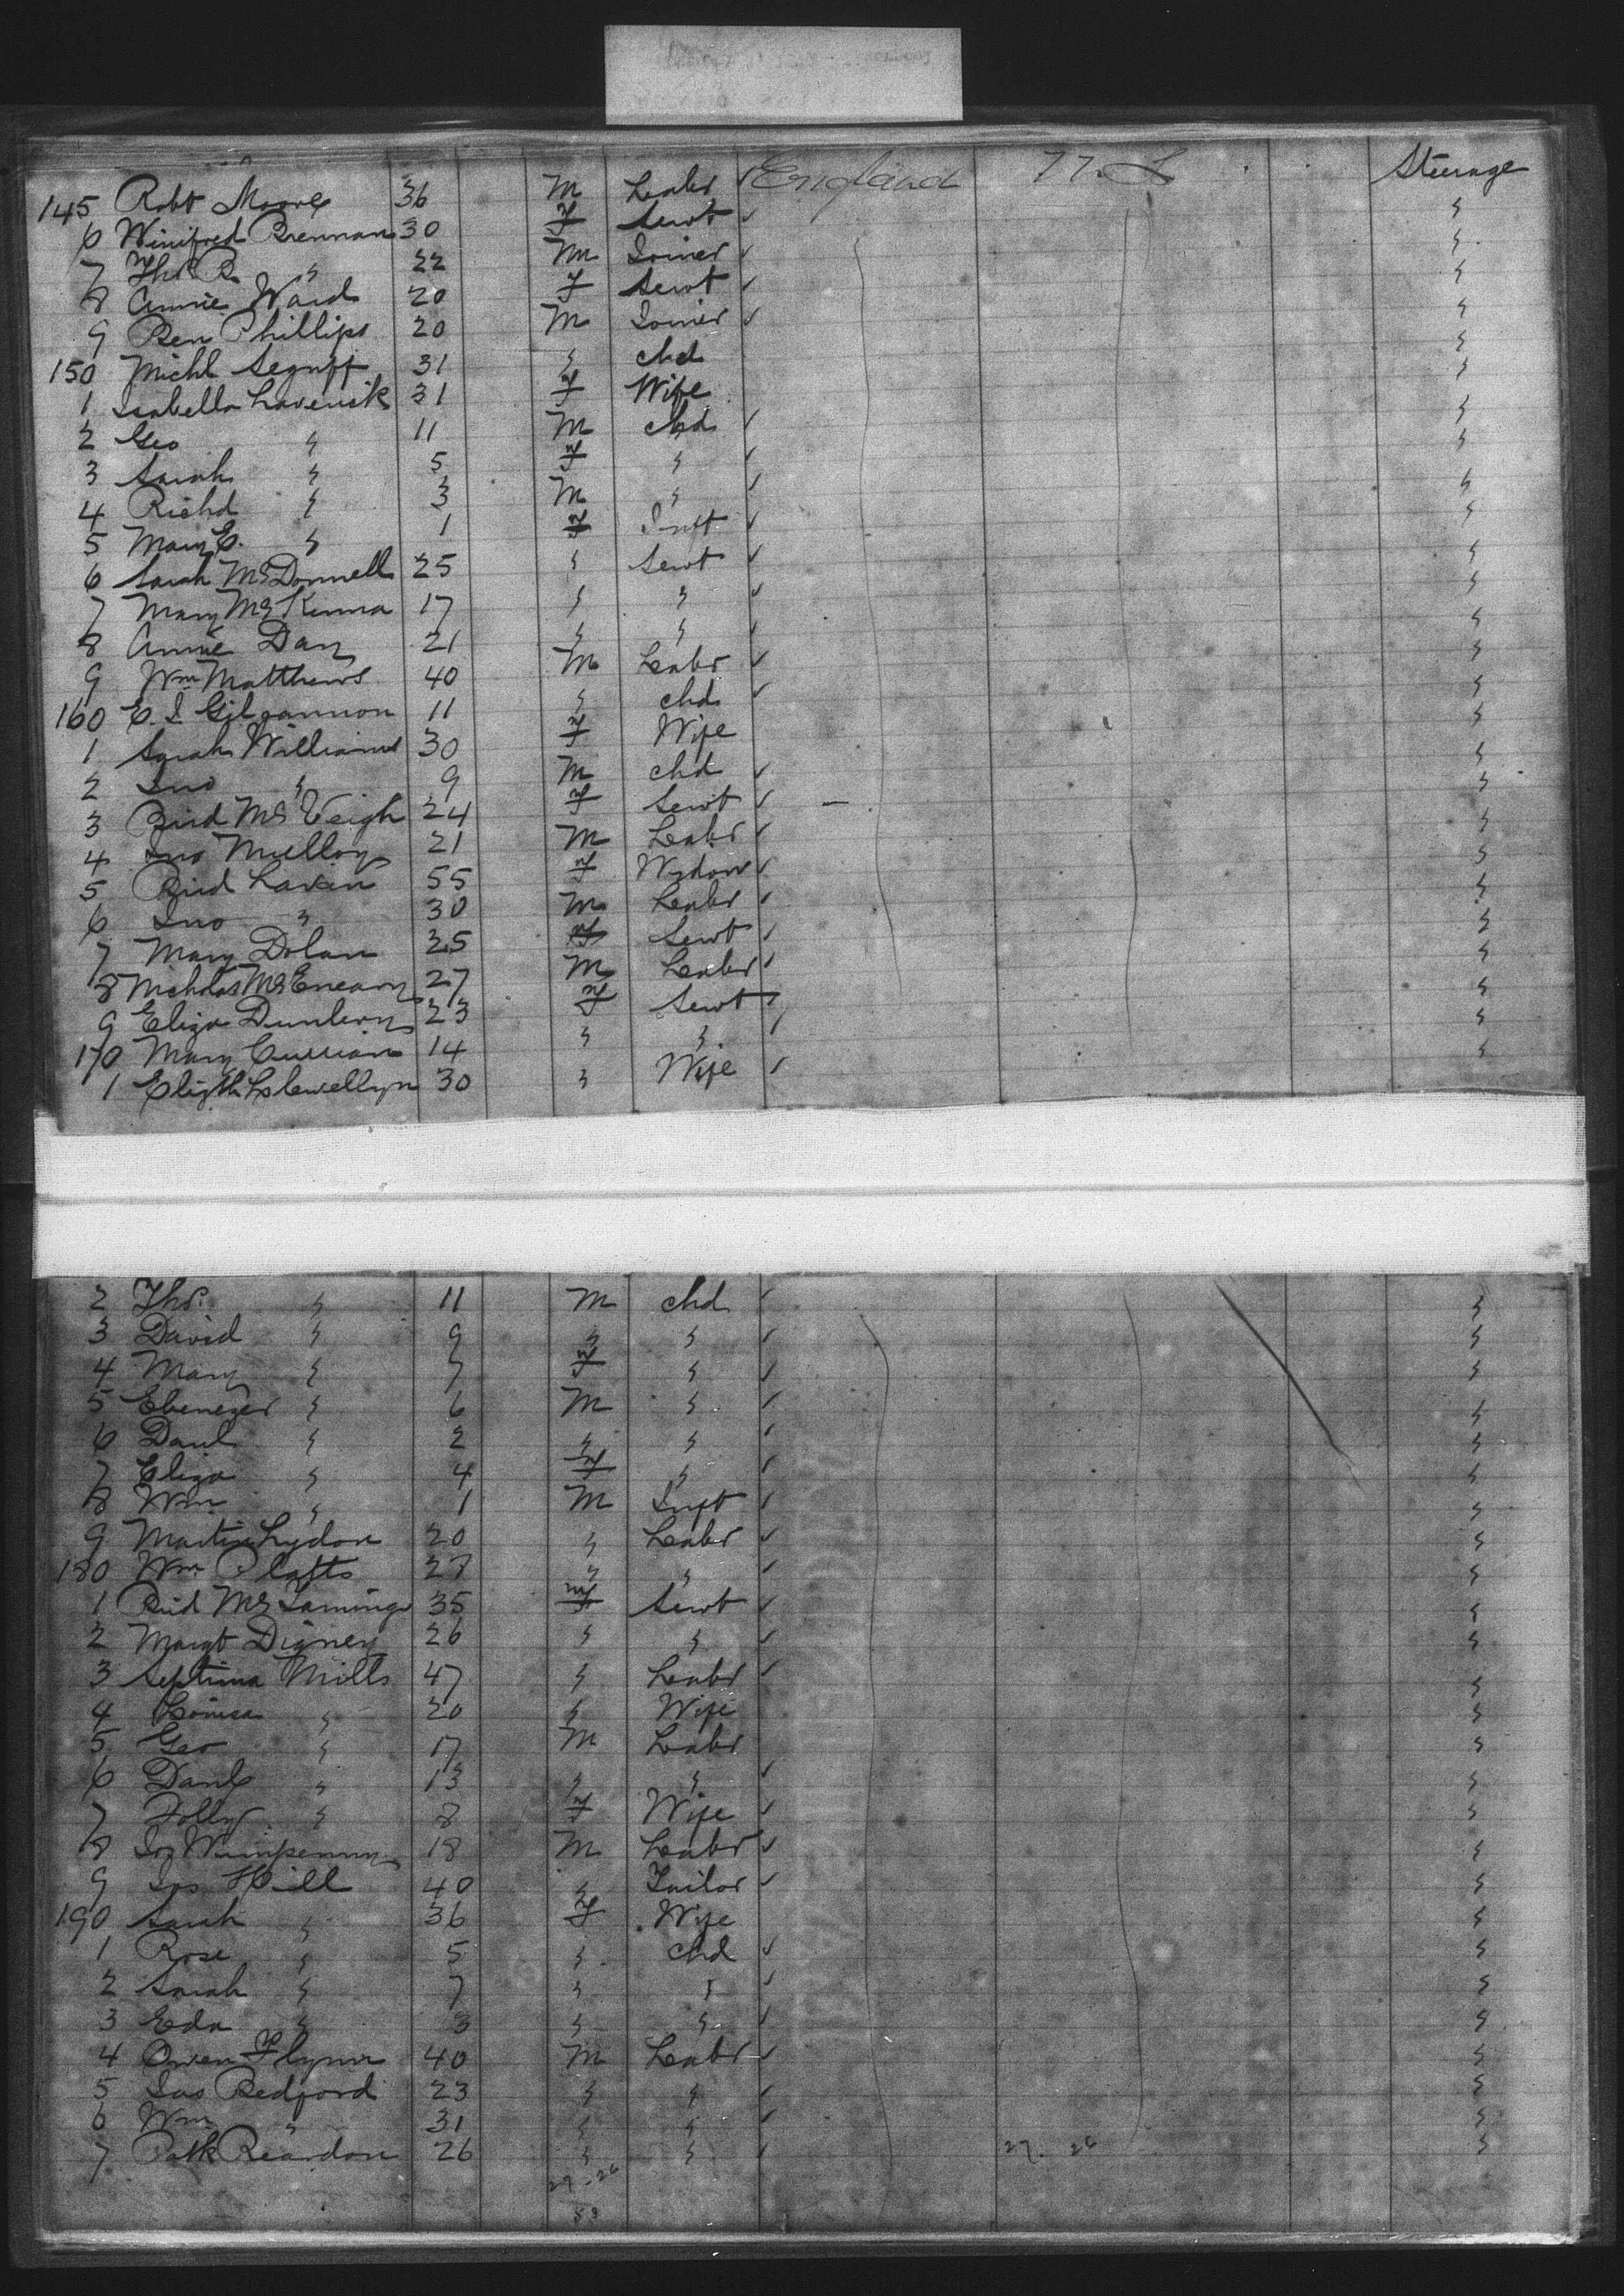 145 Robt Moore 36 M Labr England U.S. Steerage
6 Winifred Brennan 30 F Servt "
7 Thos R " 22 M Joiner "
8 Annie Ward 20 F Servt "
9 Ben Phillips 20 M Joiner "
150 Michl 31 " chd "
1 Isabella Laverick 31 F Wife "
2 Geo " 11 M chd "
3 Sarah " 5 F " "
4 Richd " 3 M " "
5 Mary E. " 1 F Inft "
6 Sarah McDonnell 25 " Servt "
7 Mary McKenna 17 " " "
8 Annie Day 21 " " "
9 Wm Matthews 40 M Labr "
160 E. J. Gilgannon 11 " chd "
1 Sarah Williams 30 F Wife "
2 Jno " 9 M chd "
3 Brid McVeigh 24 F Servt "
4 Jno Mulloy 21 M Labr "
5 Brid Lavin 55 F Widow "
6 Jno " 30 M Labr "
7 Mary Dolan 25 F Servt "
8 Nicholas McEneary 27 M Labr "
9 Eliza Dunleavy 23 F Servt "
170 Mary Curran 14 " " "
1 Elizth Llewellyn 30 " Wife
2 Thos. " 11 M chd "
3 David " 9 " " "
4 Mary " 7 F " "
5 Ebenezer " 6 M " "
6 Danl " 2 " " "
7 Eliza " 4 F " "
8 Wm " 1 M Inft "
9 Martin Lydon 20 " Labr "
180 Wm Platts 27 " " "
1 Brid 35 F Servt "
2 Margt Digney 26 " " "
3 Septima Mills 47 " Labr "
4 Louisa " 20 " Wife "
5 Geo " 17 M Labr "
6 Danl " 13 " " "
7 Polly " 8 F Wife "
8 Jos Wimpenny 18 M Labr "
9 Jos Hill 40 " Tailor "
190 Sarah " 36 F Wife "
1 Rose " 5 " chd "
2 Sarah " 7 " " "
3 Eda " 3 " " "
4 Owen Flynn 40 M Labr "
5 Jas Bedford 23 " " "
6 Wm " 31 " " "
7 Patk Reardon 26 " " 27-26 "
27-26